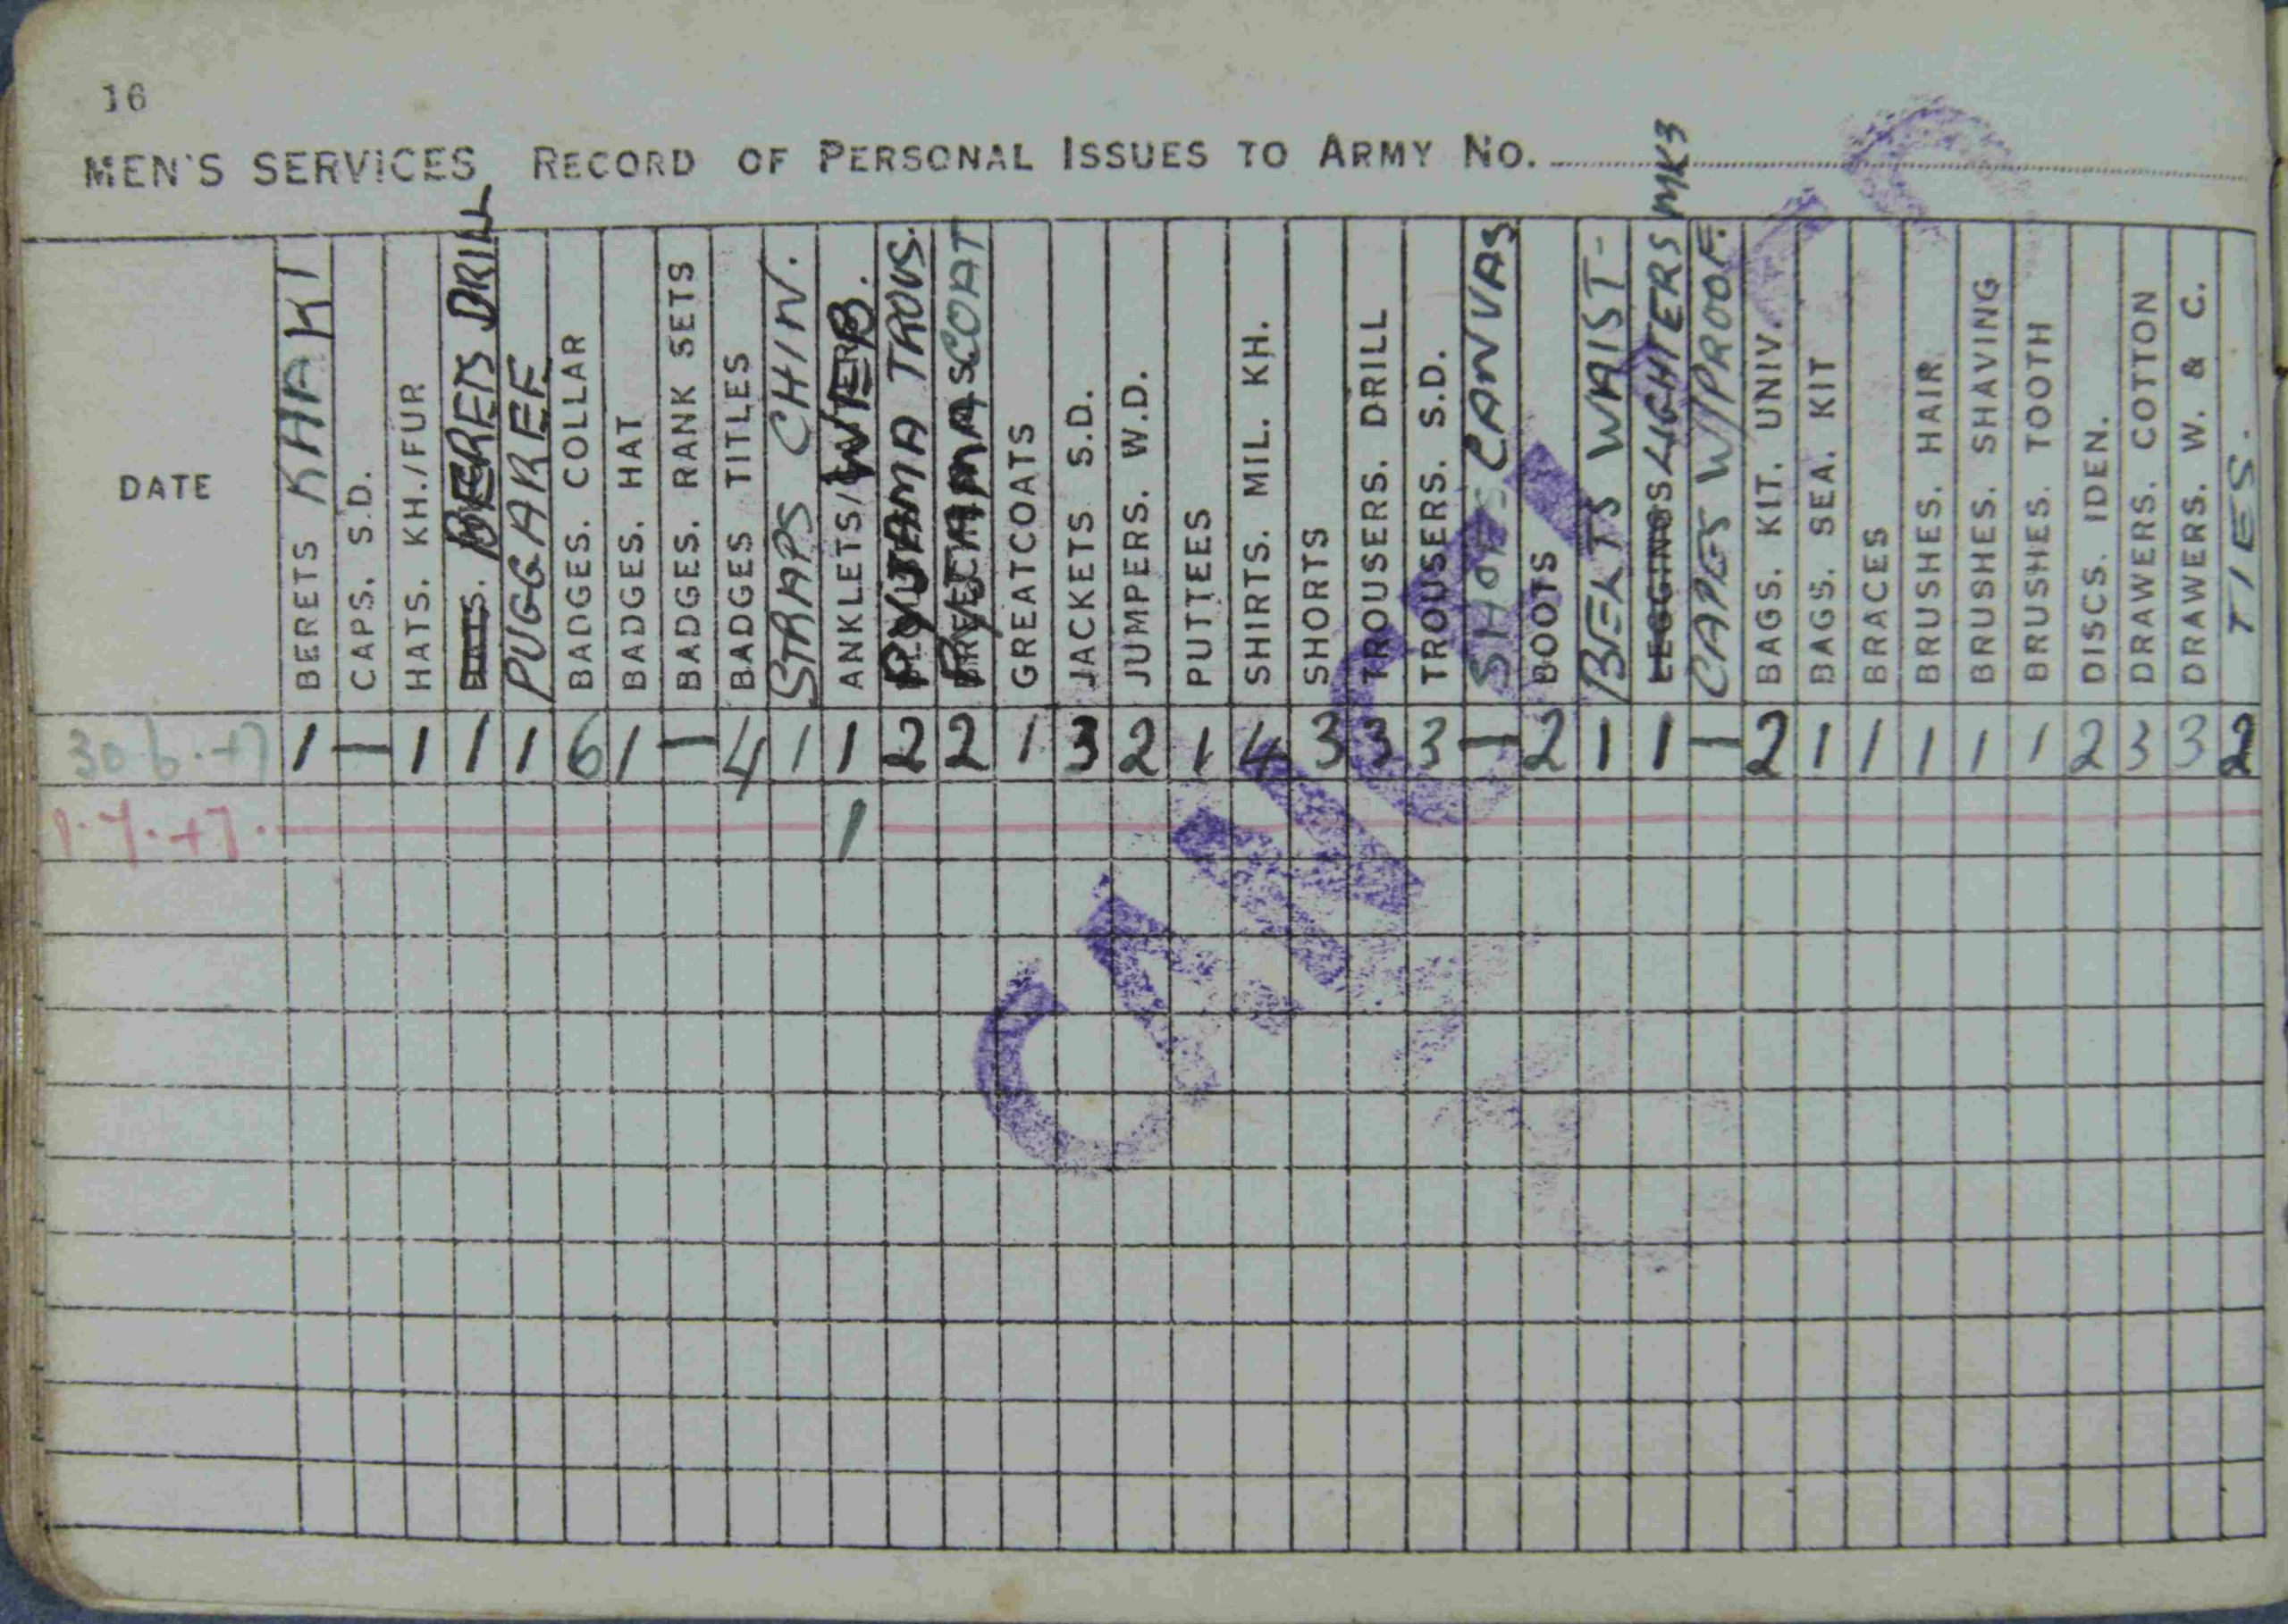 16
MEN'S SERVICES RECORD OF PERSONAL ISSUES TO ARMY No.
DATE
BERETS KHAKI
CAPS. S.D.
HATS. KH./FUR
BERETS DRILL
PUGGAREE
BADGES. COLLAR
BADGES. HAT
BADGES. RANK SETS
BADGES TITLES
STRAPS CHIN.
ANKLETS/WEB.
PYJAMA TROUS.
PYJAMAS COAT
GREATCOATS
JACKETS S.D.
JUMPERS. W.D.
PUTTEES
SHIRTS. MIL. KH.
SHORTS
TROUSERS. DRILL
TROUSERS. S.D.
SHOES CANVAS
BOOTS
BELTS WAIST-
LEGGINGS LIGHTERS MK3
CAPES W/PROOF.
BAGS. KIT. UNIV.
BAGS. SEA. KIT
BRACES
BRUSHES. HAIR
BRUSHES. SHAVING
BRUSHES. TOOTH
DISCS. IDEN.
DRAWERS. COTTON
DRAWERS. W. & C.
TIES.
30.6.47 1 — 1 1 1 6 1 — 4 1 1 2 2 1 3 2 1 4 3 3 3 — 2 1 1 — 2 1 1 1 1 1 2 3 3 2
1.7.47. 1